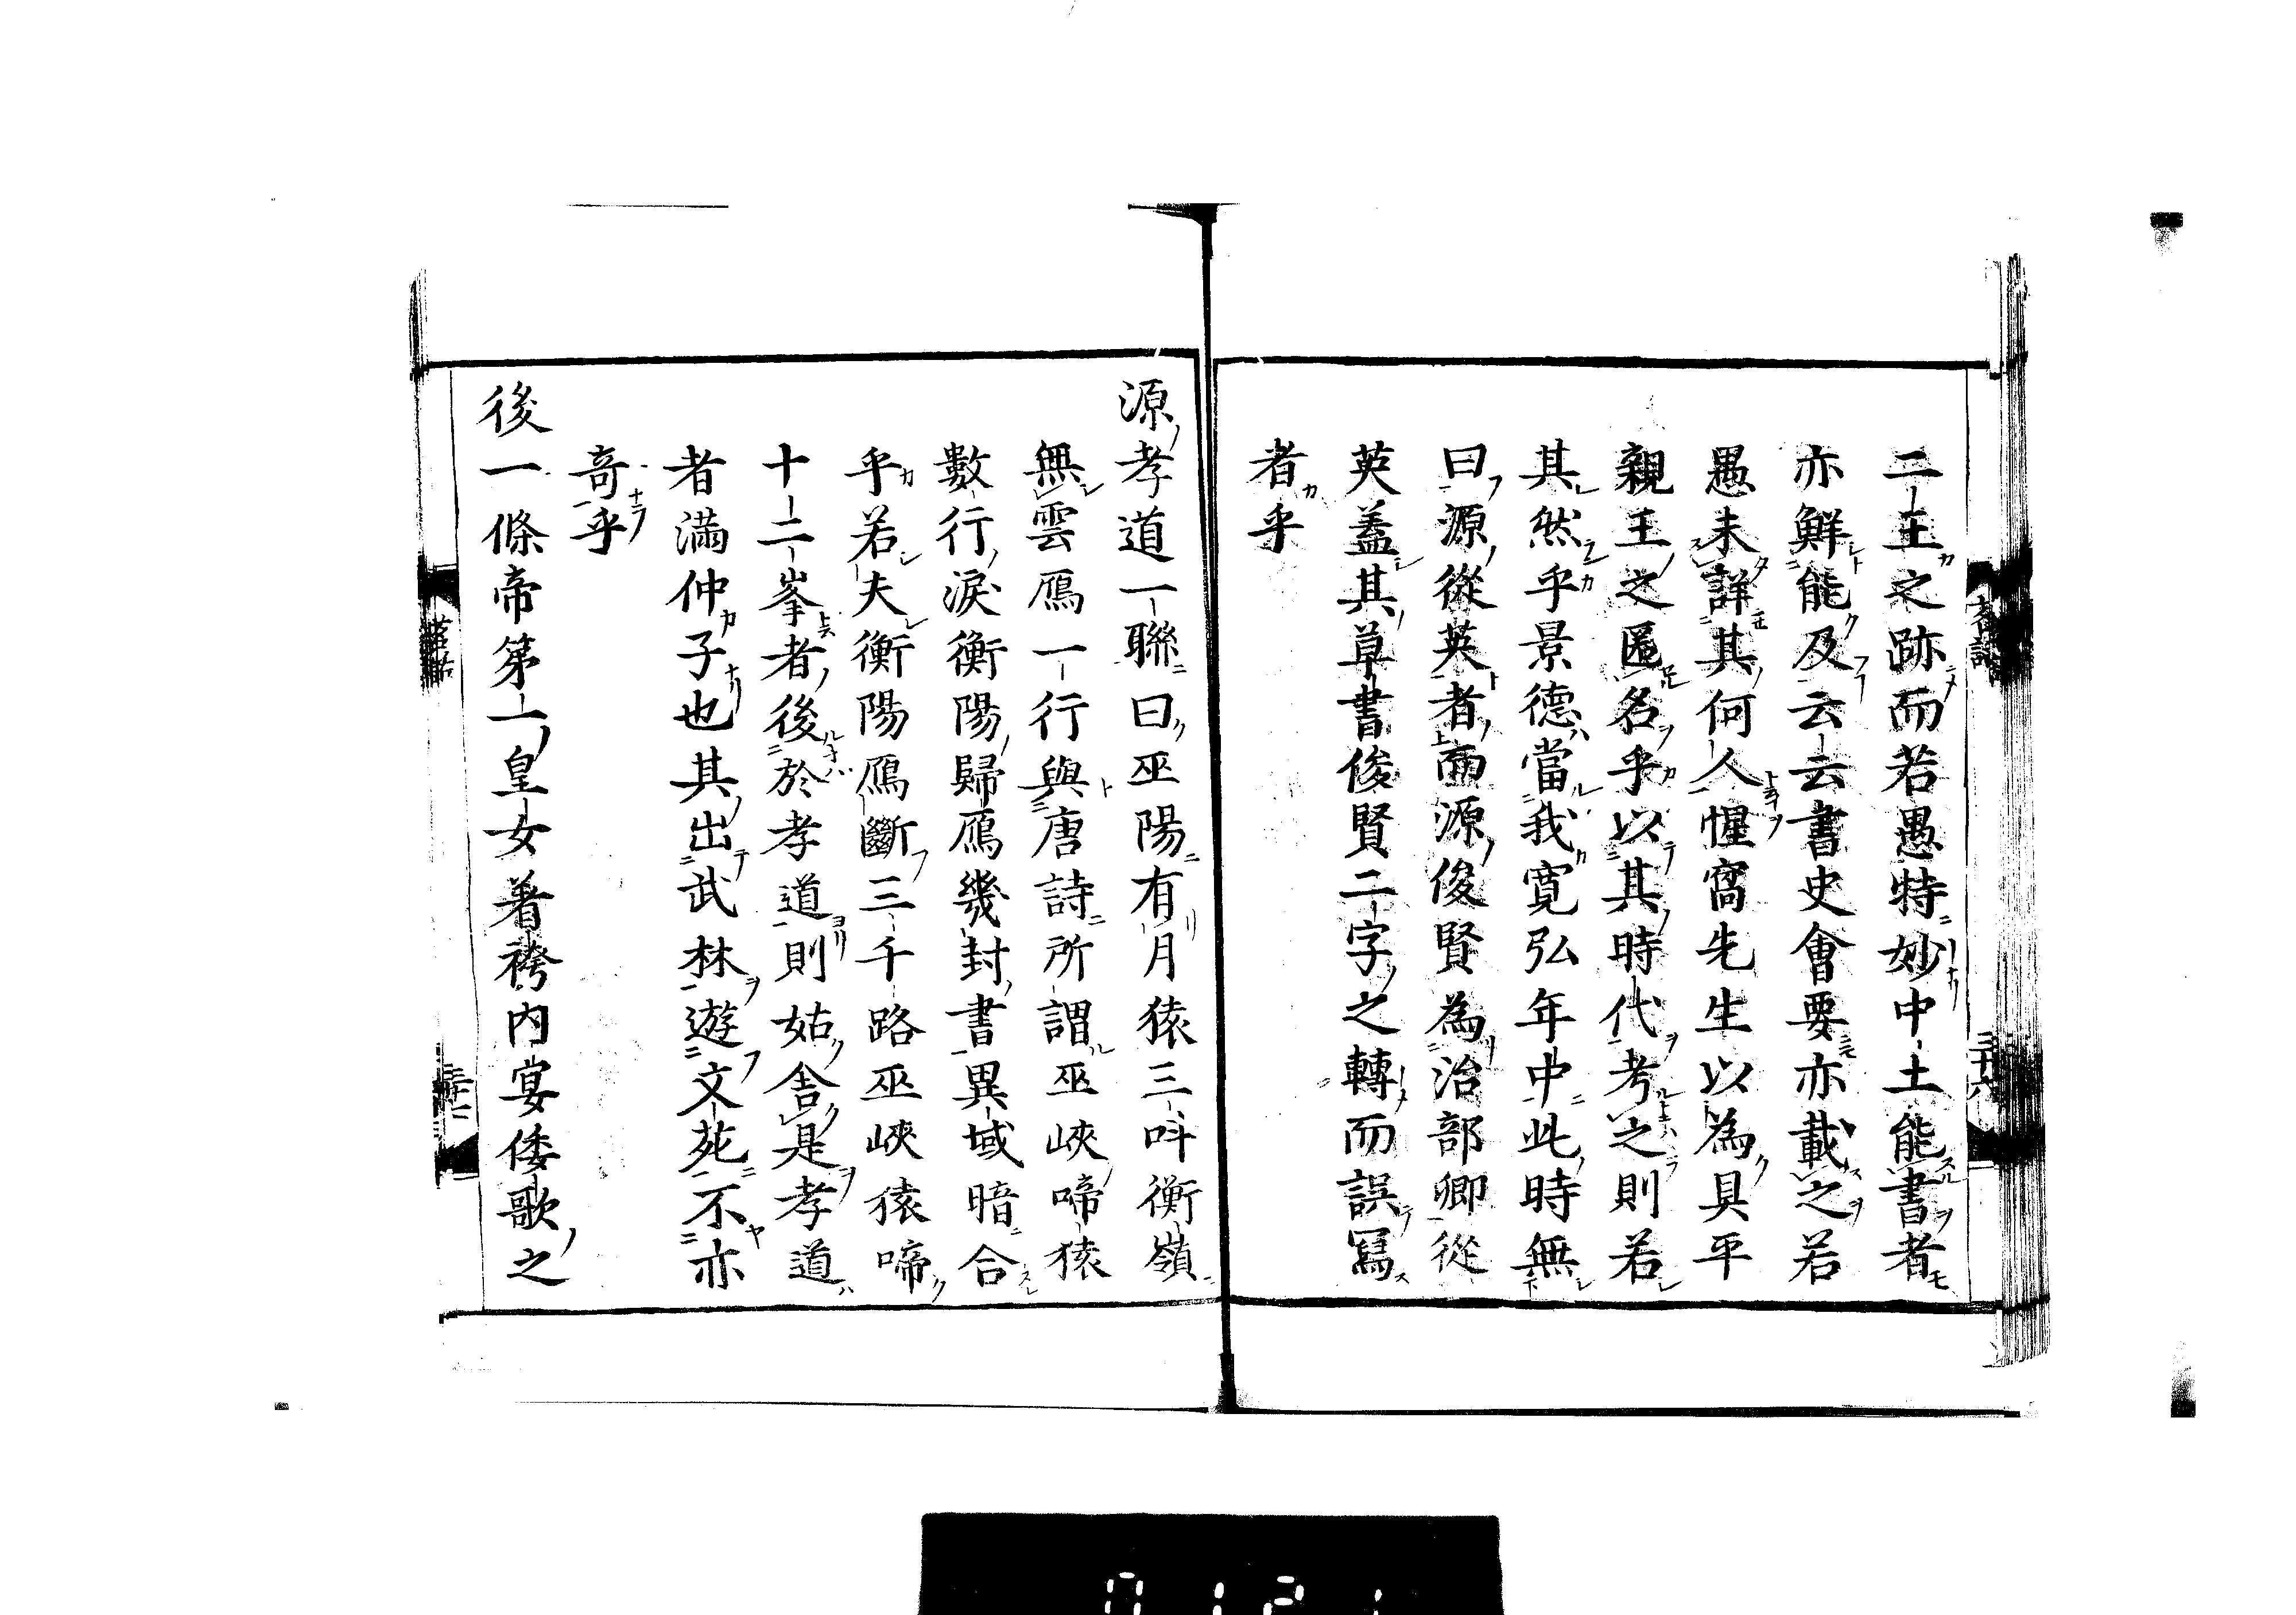 二王之跡而若愚特妙中土能書者
亦鮮能及云云書史會要亦載之若
愚未詳其何人惺窩先生以為具平
親王之匿名乎以其時代考之則若
其然乎景德當我寛弘年中此時無
曰源從英者而源俊賢為治部卿從
英蓋其草書俊賢二字之轉而誤寫
者乎
源孝道一聯曰巫陽有月猿三叫衡嶺
無雲鴈一行與唐詩所謂巫峽啼猿
數行淚衡陽歸鴈幾封書異域暗合
乎若夫衡陽鴈斷三千路巫峽猿啼
十二峯者後於孝道則姑舍是孝道
者滿仲子也其出武林遊文苑不亦
奇乎
後一條帝第一皇女著袴内宴倭歌之
三十六
0121